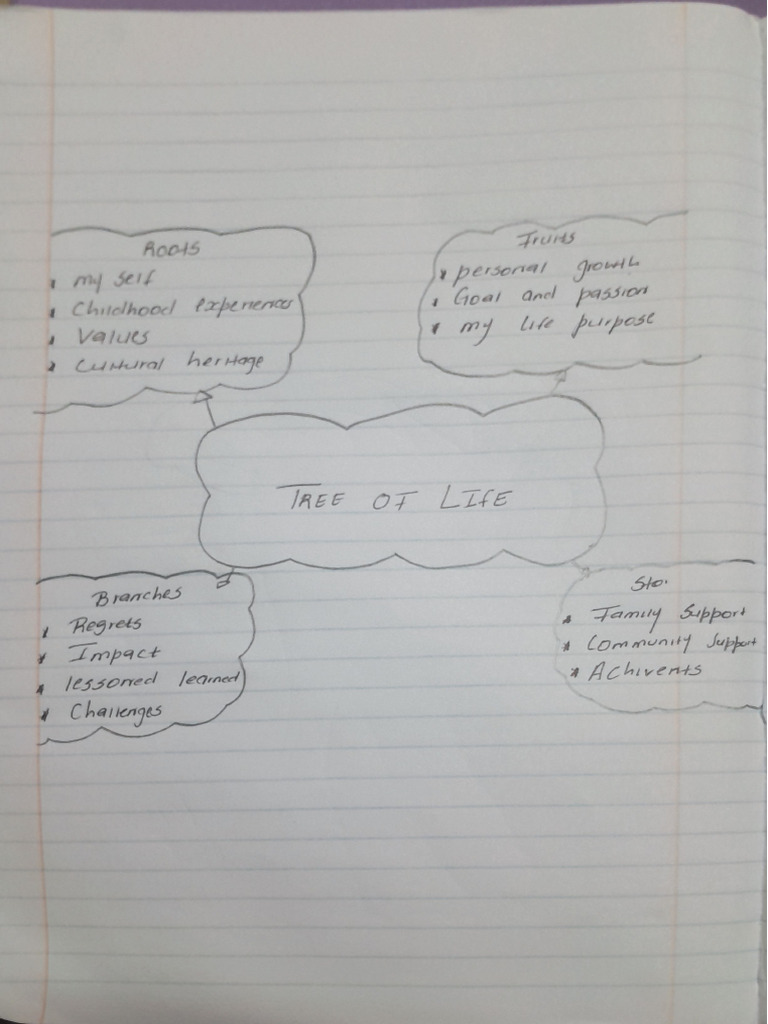 Roots
my self
Childhood experiences
Values
Cultural heritage
Fruits
personal growth
Goal and passion
my life purpose
TREE OF LIFE
Branches
Regrets
Impact
lessoned learned
Challenges
Sto.
Family Support
Community Support
Achivents